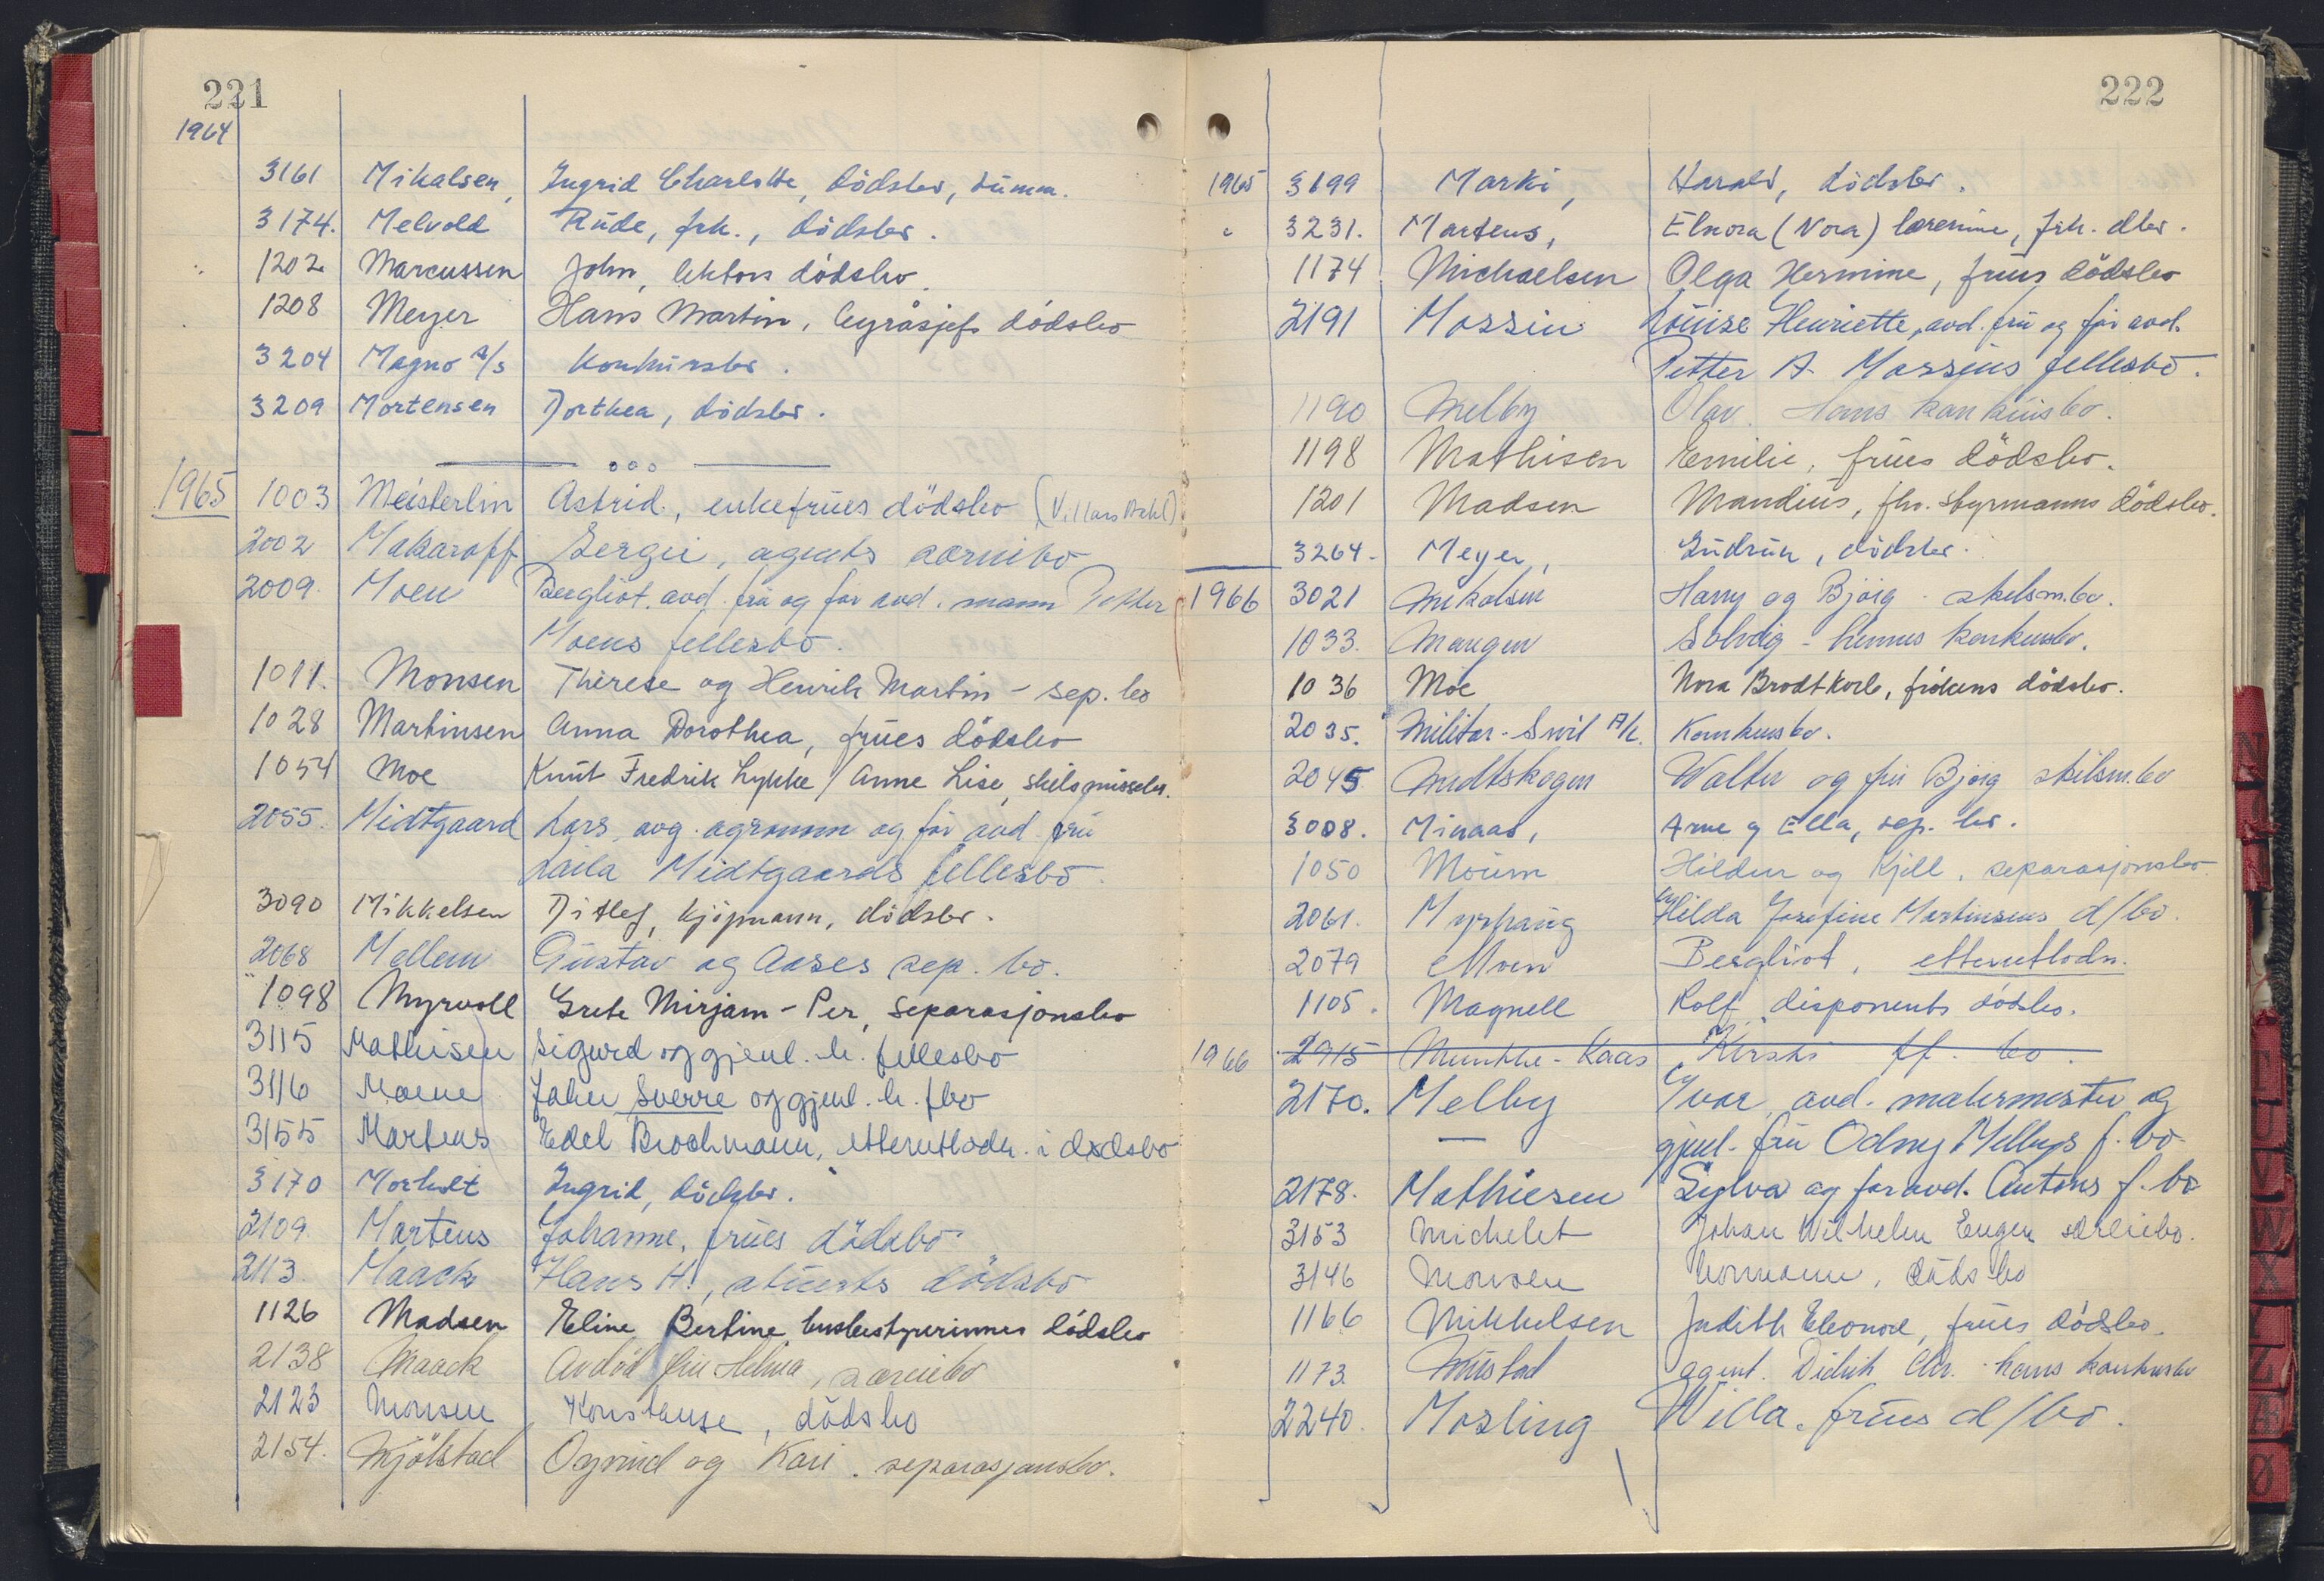 221
1964
3161 Mikalsen, Ingrid Charlotte, dödsbo, summ.
3174. Melvold Rude, frk., dödsbo.
1202 Marcussen John, lektors dödsbo.
1208 Meyer Hans Martin, byråsjefs dödsbo
3204 Magno A/s Konkursbo.
3209 Mortensen Dorthea, dödsbo.
1965 1003 Meisterlin Astrid, enkefrues dödsbo
2002 Makaroff Sergei, agents særeiebo
2009. Moen Bergliot. avd. fru og før avd. mann Petter
Moens fellesbo.
1011. Monsen Therese og Henrik Martin - sep. bo
1028 Martinsen Anna Dorothea, frues dödsbo
1054 Moe Knut Fredrik Lykke / Anne Lise, skilsmissebo.
2055. Midtgaard Lars, avg. agronom og før avd. fru
Laila Midtgaards fellesbo.
3090 Mikkelsen Ditlef, kjöpmann, dödsbo.
2068 Mellem Gustav og Aases sep. bo.
1098 Myrvoll Grete Mirjam - Per, separasjonsbo
3115 Mathisen Sigurd og gjenl. h. fellesbo
3116 Moene Johan Sverre og gjenl. h. fbo
3155 Martens Edel Brochmann, etterutlodn. i dødsbo
3170 Morholt Ingrid, dödsbo.
2109. Martens Johanne, frues dödsbo
2113. Maack Hans H., dödsbo
1126 Madsen Eline Bertine husbestyrerinnes dödsbo
2138 Maack Avdöd fru Helma, særeiebo
2123 Monsen Konstanse, dödsbo
2154. Mjölstad Öyvind og Kari. separasjonsbo.
222
1965 3199 Marki, Harald, dödsbo.
" 3231. Martens, Elnora (Nora) Lorenine, frk. dbo.
1174 Michaelsen Olga Hermine, frues dödsbo
2191 Mossin Louise Henriette, avd. fru og før avd.
Petter A. Mossins fellesbo.
1190 Melby Olav. Hans konkursbo.
1198 Mathisen Emilie, frues dödsbo.
1201 Madsen Mandius, fhv. styrmanns dödsbo.
3264. Meyer, Gudrun, dödsbo.
1966 3021 Mikalsen Harry og Björg. skilsm.bo.
1033. Mangen Solveig - hennes konkursbo.
1036 Moe Nora Brodtkorb, frökens dödsbo.
2035. Militær-Sivil A/s. Konkursbo.
2045 Midtskogen Walter og fru Björg skilsm.bo
3008. Minaas, Arne og Ella, sep. bo.
1050 Moum Hildur og Kjell, separasjonsbo.
2061. Myrhaug Hilda Josefine Martinsens d/bo.
2079 Moen Bergliot, etterutlodn.
1105. Magnell Rolf, disponents dödsbo.
1966 2915 Munthe-Kaas Kirsti ff. bo.
2170. Melby Yvar, avd. malermester og
— gjenl. fru Odny Melbys f. bo.
2178. Mathiesen Sylva og før avd. Antons f. bo
3153 Michelet Johan Wilhelm Eugen særeiebo.
3146 Monsen Normann, dödsbo
1166 Mikkelsen Judith Eleonore, frues dödsbo.
1173. Mustad agent. Didrik Chr. hans konkursbo
2240. Mosling Willa. frues d/bo.